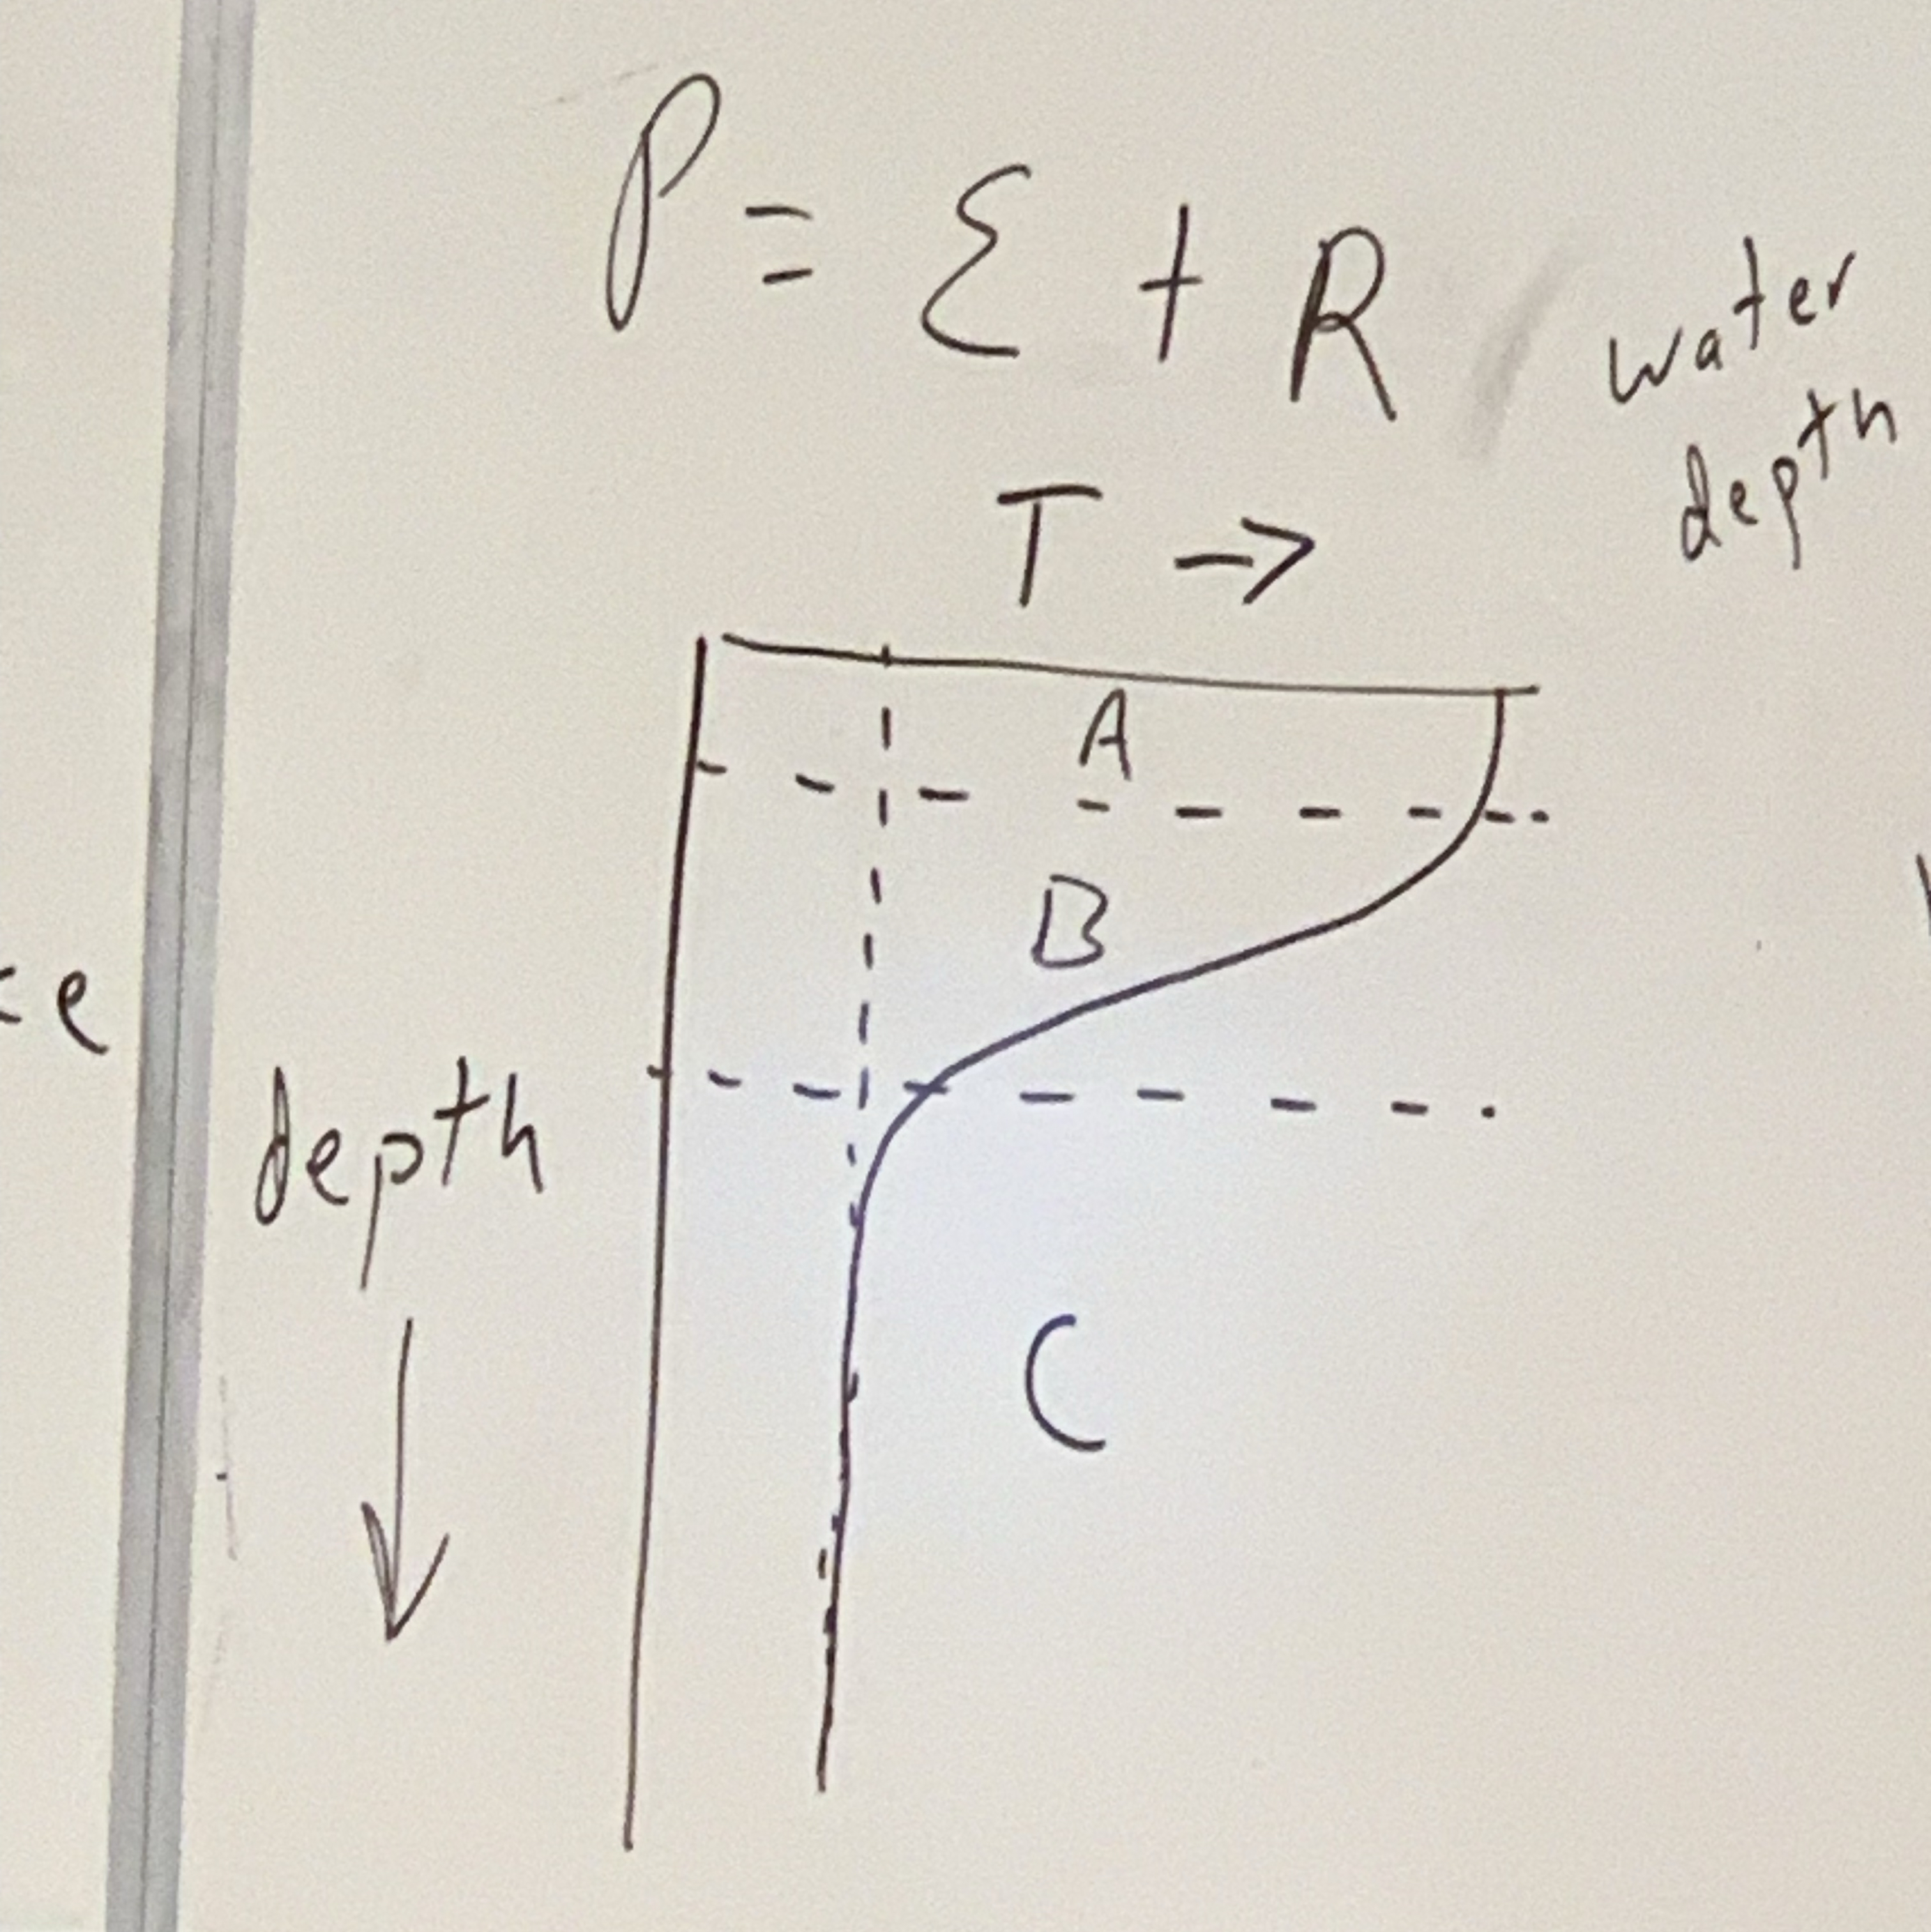 P = Ɛ + R
water
depth
T →
A
B
depth
C